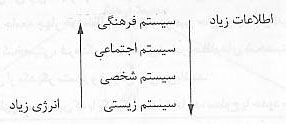 اطلاعات زیاد سیستم فرهنگی
سیستم اجتماعی
سیستم شخصی
سیستم زیستی انرژی زیاد